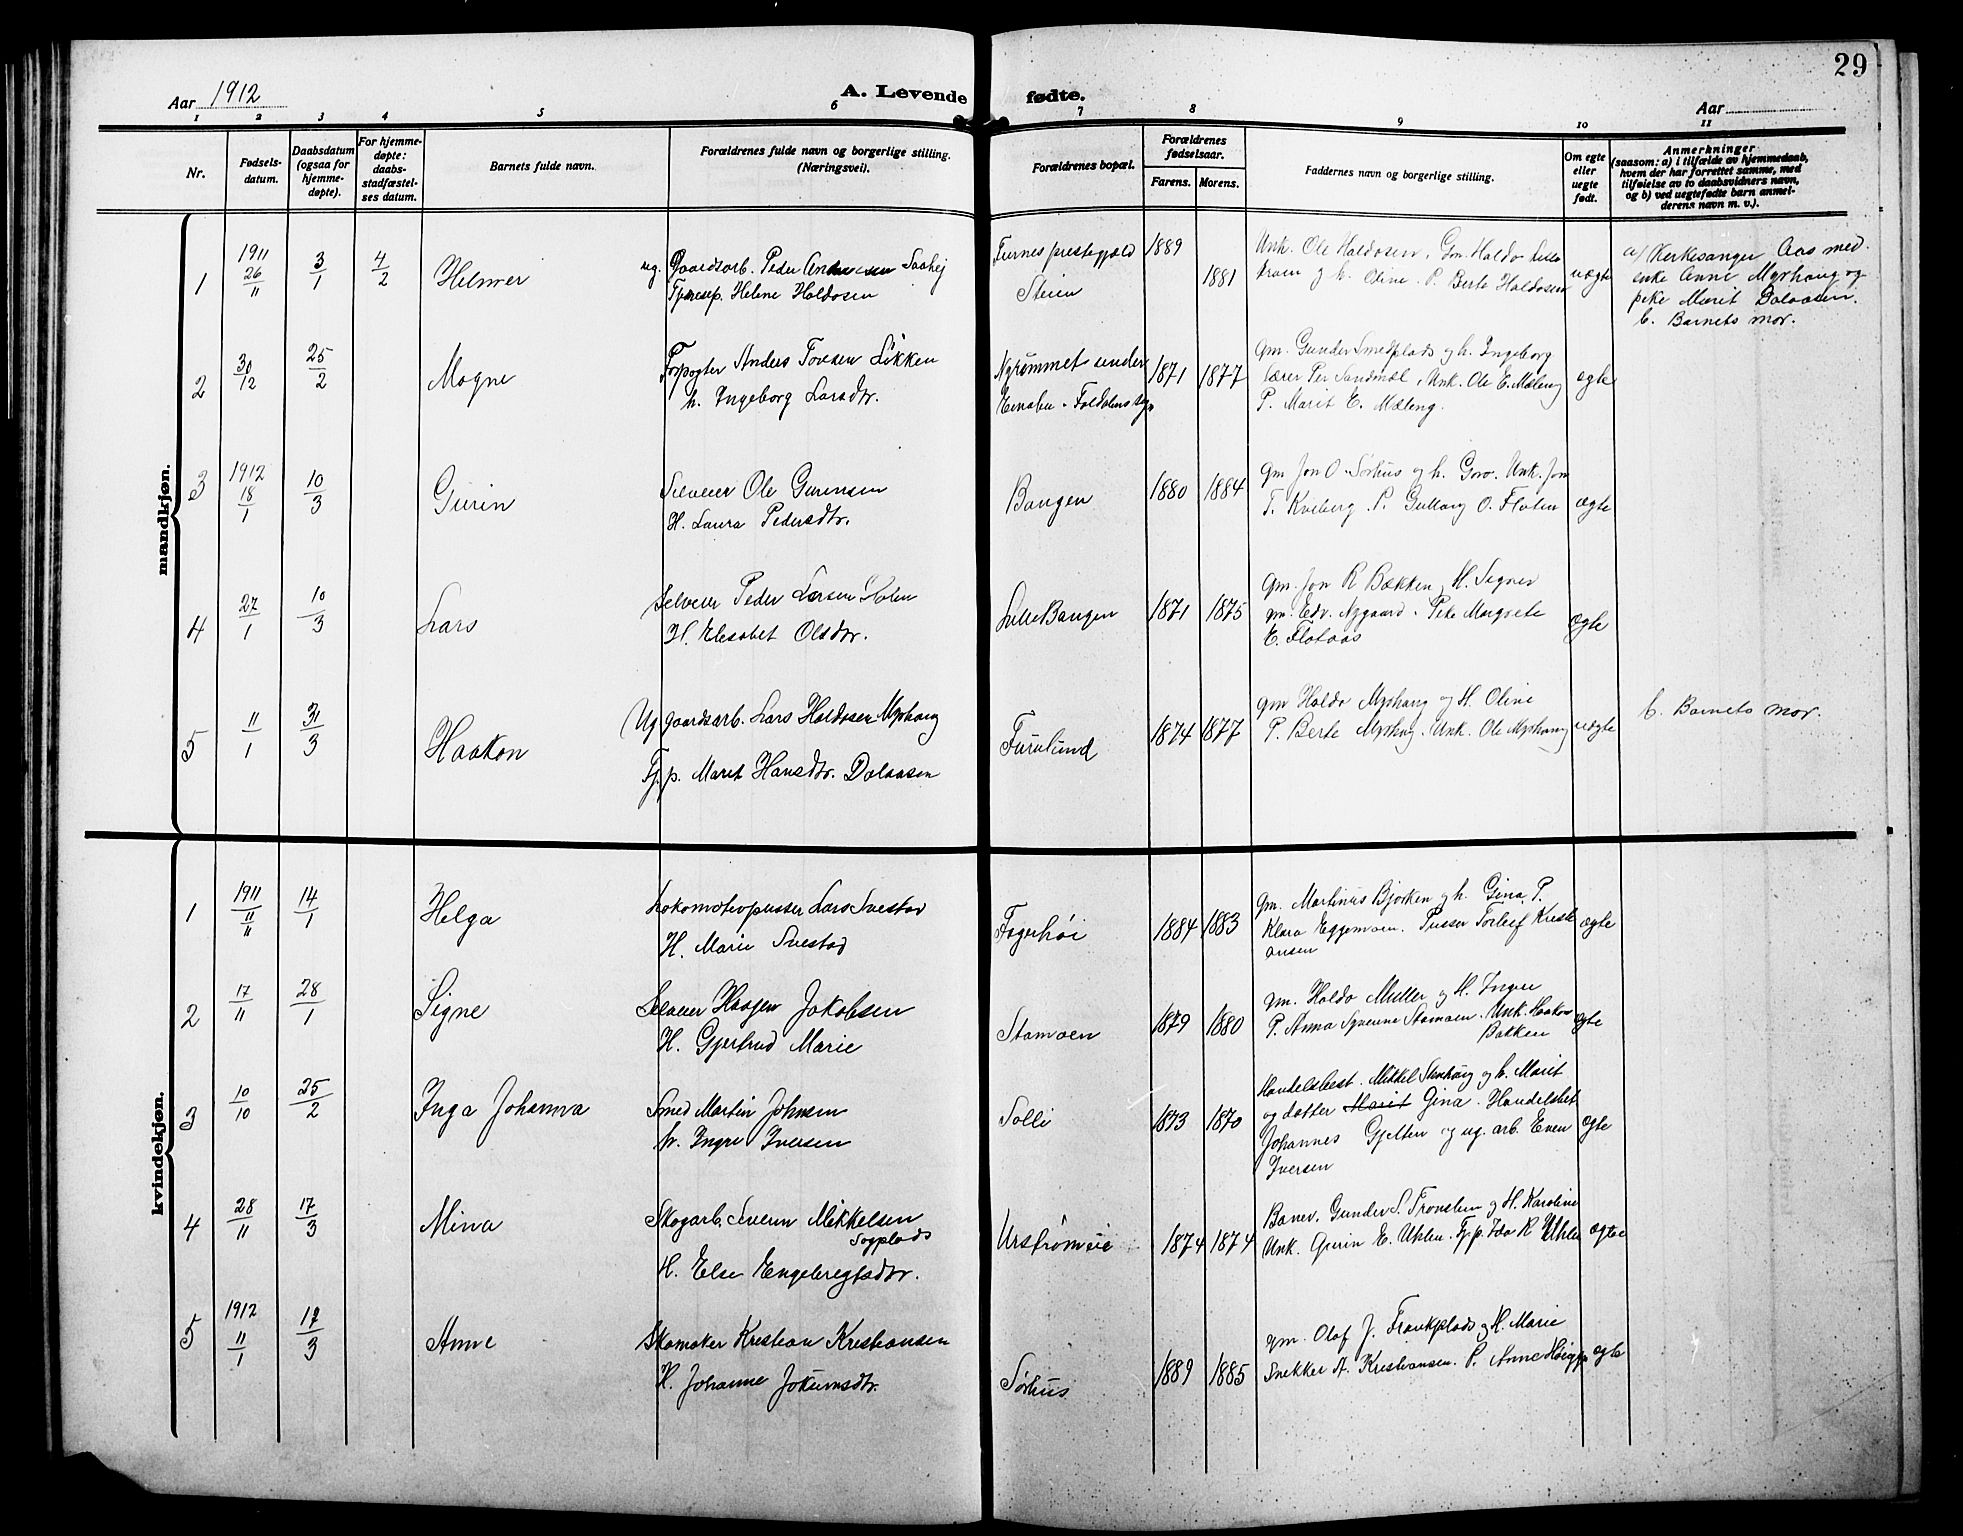 29
Aar 1912
A. Levende fødte.
Aar
1 2 3 4 5 6 7 8 9 10 11
Nr.
Fødsels-
datum.
Daabsdatum
(ogsaa for
hjemme-
døpte).
For hjemme-
døpte:
daabs-
stadfæstel-
ses datum.
Barnets fulde navn.
Forældrenes fulde navn og borgerlige stilling.
(Næringsvei).
Forældrenes bopæl.
Forældrenes
fødselsaar.
Farens. Morens.
Faddernes navn og borgerlige stilling.
Om egte
eller
uegte
født.
Anmerkninger
(saasom: a) i tilfælde av hjemmedaab,
hvem der har forrettet samme, med
tilføielse av to daabsvidners navn,
og b) ved uegtefødte barn anmel-
derens navn m. v.).
mandkjøn.
1 1911 26/11 3/1 4/2 Helmer
ug. Gaardsarb. Peder
Tjenesep. Helene Haldosen
Furnes prestegjeld
Steien
1889 1881
Unk. Ole Haldosen, Gm. Haldo
og h. Oline. P. Berte Haldosen
uægte
a/ Kirkesanger Aas med
enke Anne Myrhaug og
pike Marit Dalaasen.
b. Barnets mor.
2 30/12 25/2 Magne
Forpagter Anders Toresen Løkken
h. Ingeborg Larsdtr.
Nyrømmet under
Einabu - Foldalens
1871 1877
Gm. Gunder Smedplads og h. Ingeborg
Lærer Per Sandmæl, Unk. Ole E. Mæleng
P. Marit E. Mæleng.
ægte
3 1912 18/1 10/3 Gurin
Selveier Ole Gurinsen
H. Laura Pedersdtr.
Bangen
1880 1884
Gm Jon O. Sørhus og h. Goro. Unk. Jon
T. Kveberg. P. Gullaug O. Floten
ægte
4 27/1 10/3 Lars
Selveier Peder Larsen Holen
H. Elisabet Olsdtr.
Lille Bangen
1871 1875
Gm. Jon R Bækken og H. Signe
gm. Edv. Nygaard. Pike Margrete
E. Flataas
ægte
5 11/1 31/3 Haakon
Ug gaardsarb. Lars Haldosen Myrhaug
Tj.p. Marit Hansdtr. Dalaasen
Furulund
1874 1877
Gm Haldo Myrhaug og H. Oline
P. Berte Myrhaug. Unk. Ole Myrhaug
uægte
b. Barnets mor.
kvindekjøn.
1 1911 11/11 14/1 Helga
Lokomotivpusser Lars Svestad
H. Marie Svestad
Fagerhøi
1884 1883
Gm. Martinus Bjørken og h. Gina P.
Klara Eggemoen. Pusser Torleif Kristi
ansen
ægte
2 17/11 28/1 Signe
Selveier Haagen Jakobsen
H. Gjertrud Marie
Stamoen
1879 1880
gm. Haldo Muller og H. Inger
P. Anna Syvenne Stamoen. Unk. Haakon
Bakken
ægte
3 10/10 25/2 Inga Johanna
Smed Martin Johnsen
h. Ingri Iversen
Solli
1873 1870
Handelsbest. Mikkel Stenhaug og h. Marit
og datter Marit Gina. Handelsbet
Johannes Gjelten og ug. arb. Even
Iversen
ægte
4 28/11 17/3 Mina
Skogarb. Severin Mikkelsen
Sagplads
H. Else Engebregtsdtr.
Urstrømeie
1874 1874
Banev. Gunder S. Tronslien og H. Karoline
Unk. Gurin E. Uhlen. Tj.p. Ida R Uhlen
ægte
5 1912 11/1 17/3 Anne
Skomaker Kristian Kristiansen
H. Johanne Jokumsdtr.
Sørhus
1889 1885
gm. Olaf J. Frankplads og H. Marie
Snekker A. Kristiansen. P. Anne
ægte